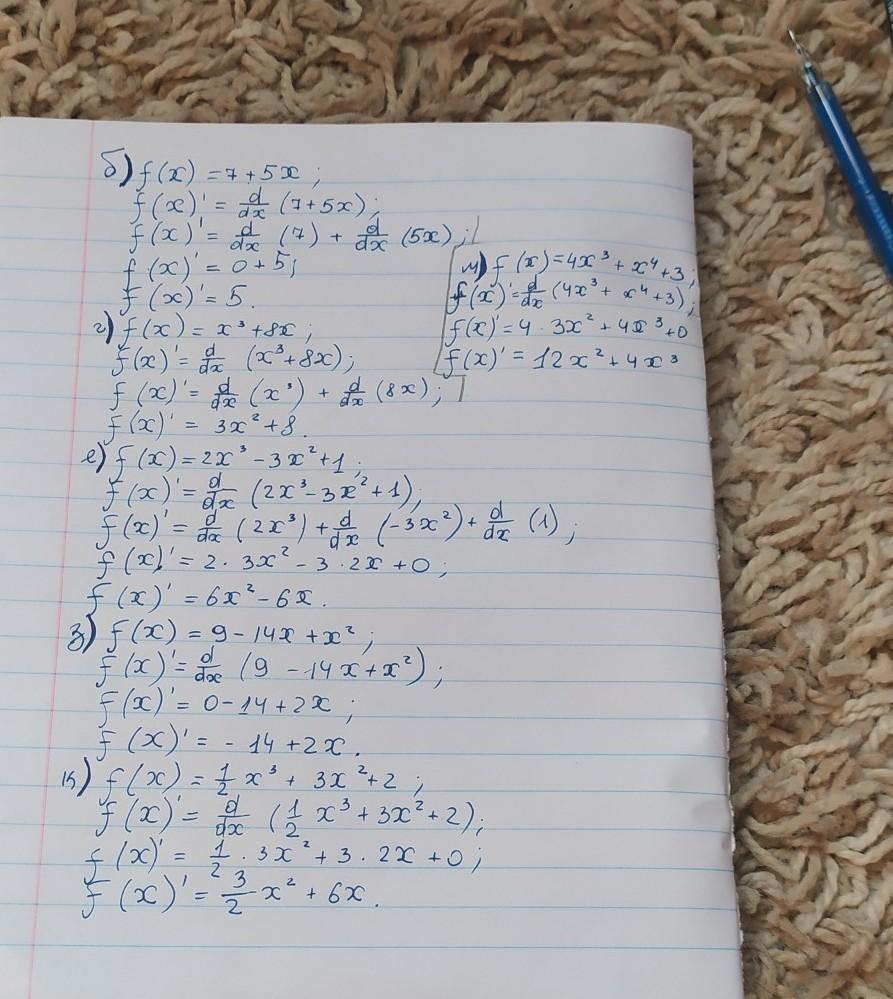 б) f(x) = 7 + 5x ;
f(x)' = d/dx (7+5x);
f(x)' = d/dx (7) + d/dx (5x);
f(x)' = 0 + 5;
f(x)' = 5.
г) f(x) = x³ + 8x ;
f(x)' = d/dx (x³ + 8x);
f(x)' = d/dx (x³) + d/dx (8x);
f(x)' = 3x² + 8.
е) f(x) = 2x³ - 3x² + 1;
f(x)' = d/dx (2x³ - 3x² + 1);
f(x)' = d/dx (2x³) + d/dx (-3x²) + d/dx (1);
f(x)' = 2 · 3x² - 3 · 2x + 0;
f(x)' = 6x² - 6x.
з) f(x) = 9 - 14x + x²;
f(x)' = d/dx (9 - 14x + x²);
f(x)' = 0 - 14 + 2x;
f(x)' = - 14 + 2x.
к) f(x) = 1/2 x³ + 3x² + 2;
f(x)' = d/dx (1/2 x³ + 3x² + 2);
f(x)' = 1/2 · 3x² + 3 · 2x + 0;
f(x)' = 3/2 x² + 6x.
м) f(x) = 4x³ + x⁴ + 3;
f(x)' = d/dx (4x³ + x⁴ + 3);
f(x)' = 4 · 3x² + 4x³ + 0
f(x)' = 12x² + 4x³